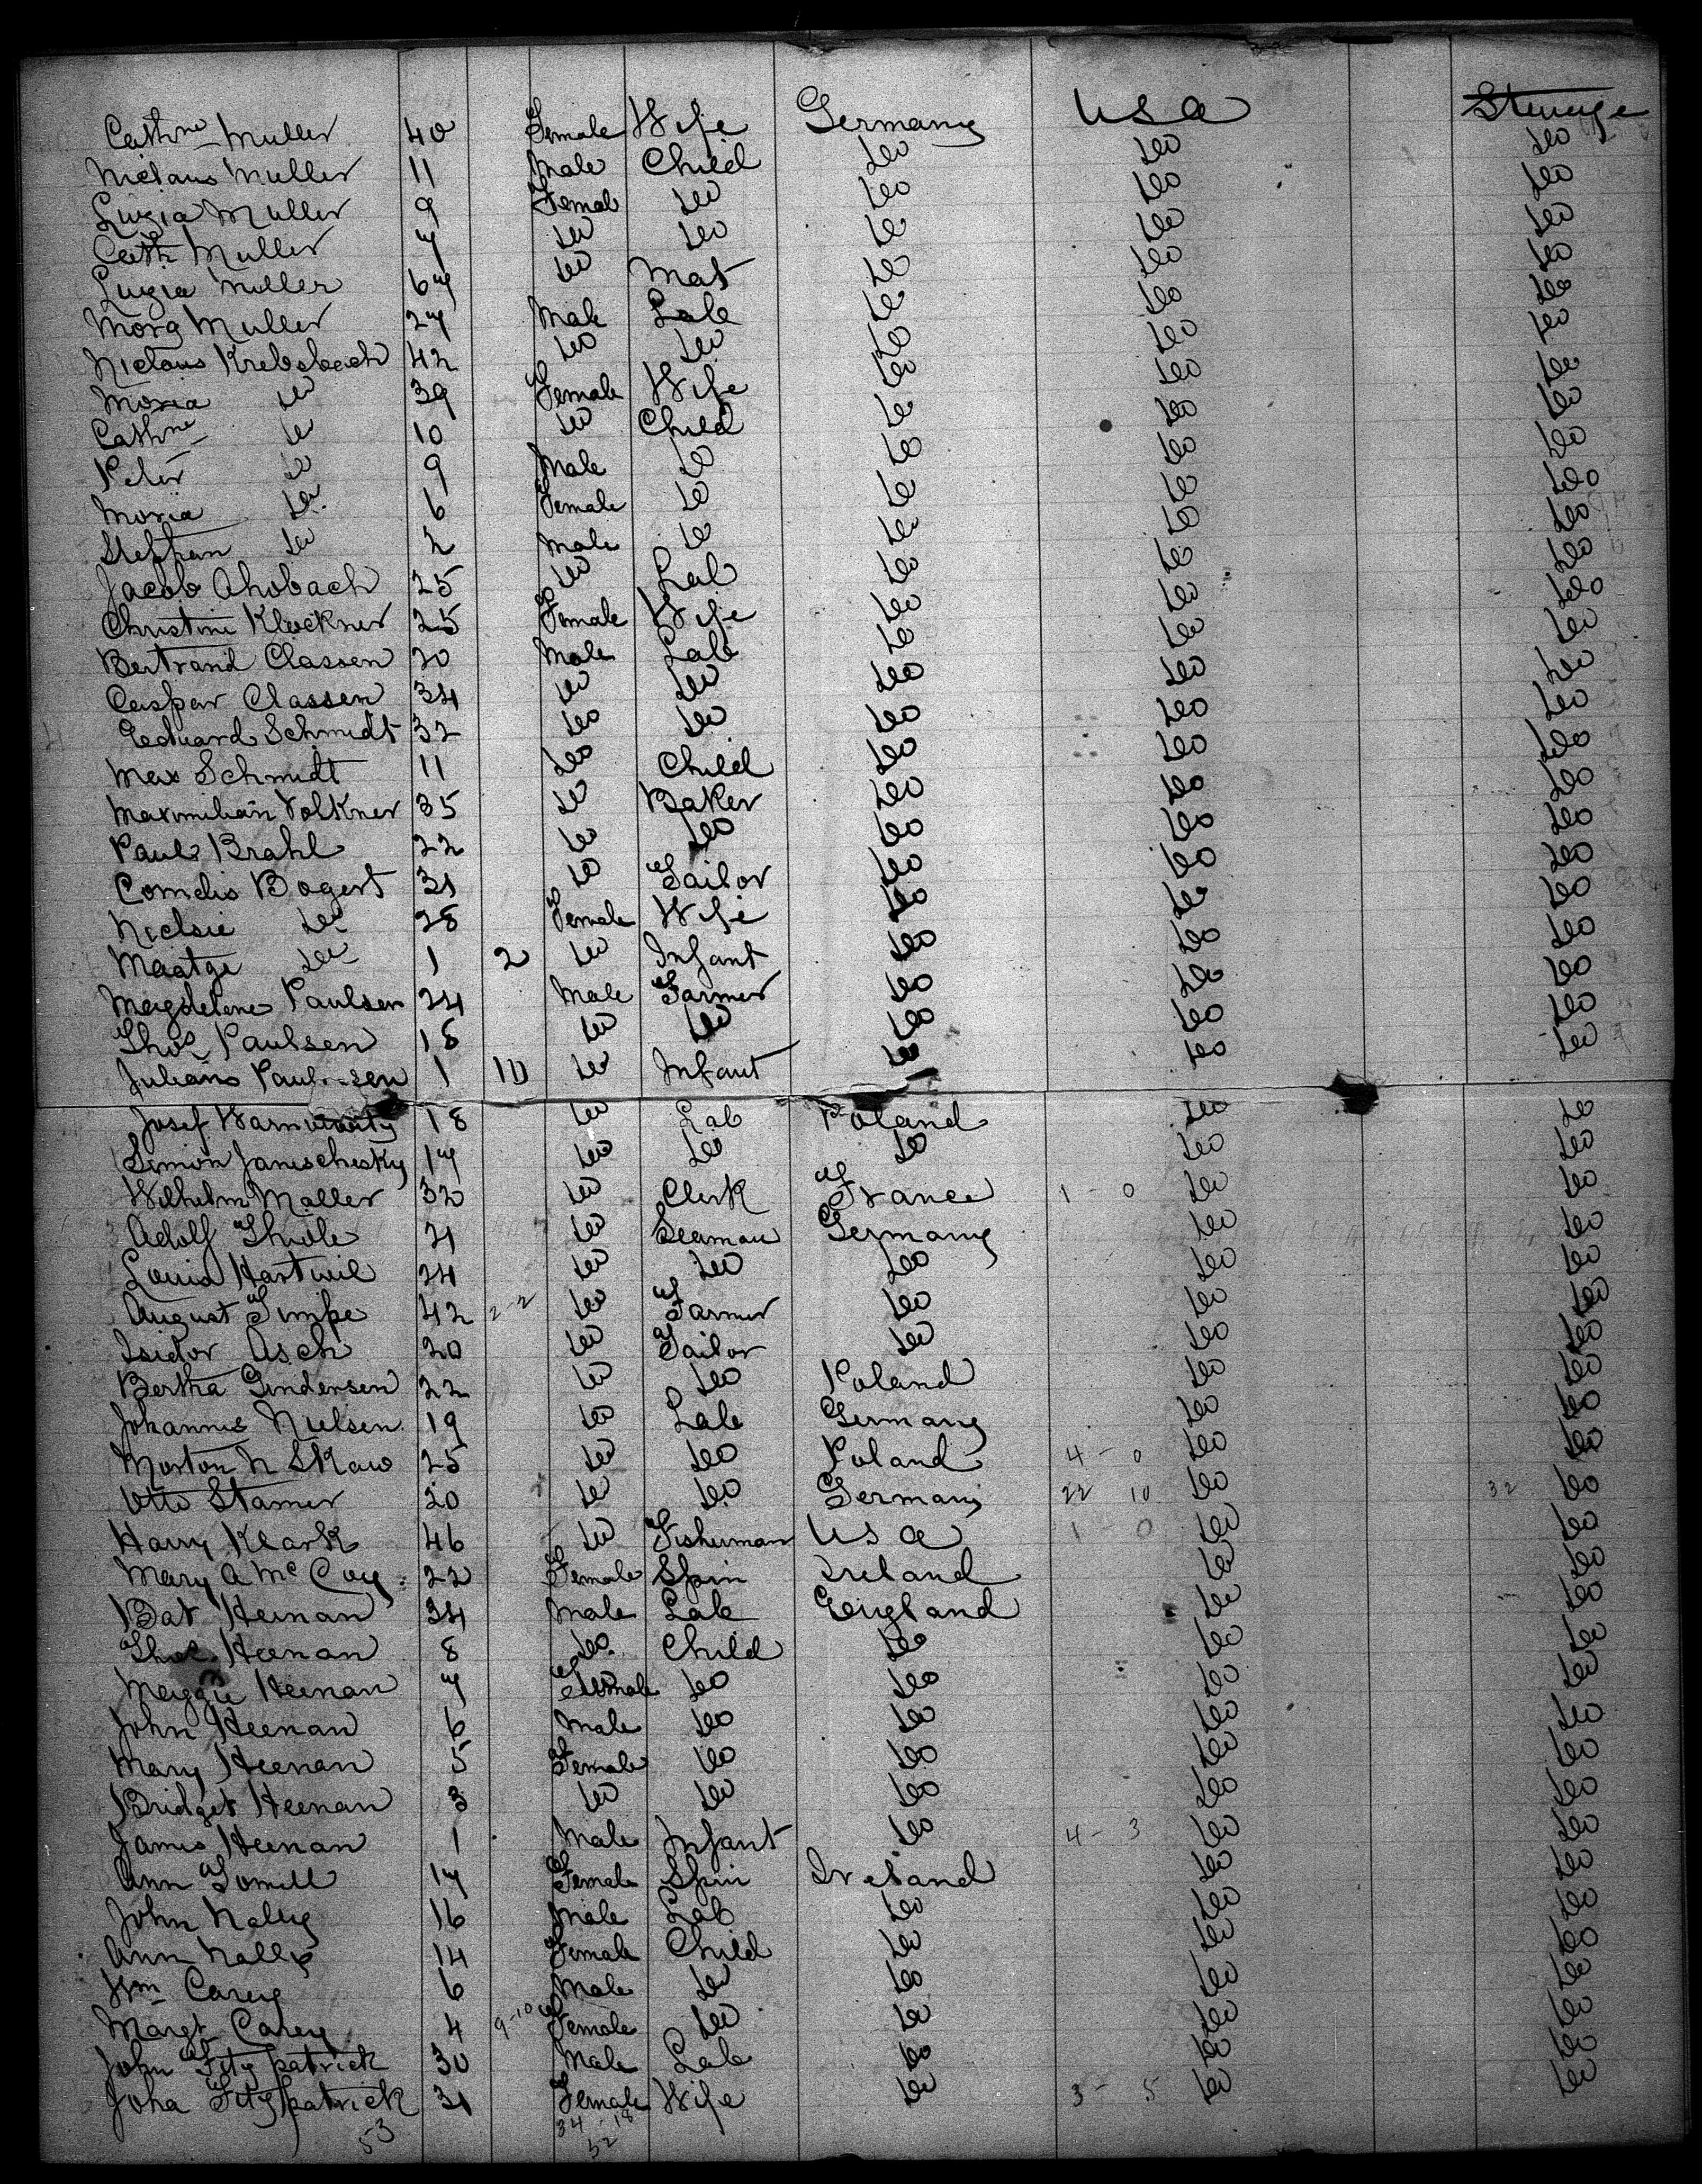 Cathne Muller 40 Female Wife Germany USA Steerage
Niclaus Muller 11 Male Child Do Do Do
Luzia Muller 9 Female Do Do Do Do
Cath Muller 7 Do Do Do Do Do
Luzia Muller 67 Do Mat Do Do Do
Morg Muller 27 Male Lab Do Do Do
Niclaus Krebsbach 42 Do Do Do Do Do
Moria Do 39 Female Wife Do Do Do
Cathne Do 10 Do Child Do Do Do
Peter Do 9 Male Do Do Do Do
Moria Do 6 Female Do Do Do Do
Stephan Do 2 Male Do Do Do Do
Jacob Ahobach 25 Do Lab Do Do Do
Christine Klockner 25 Female Wife Do Do Do
Bertrand Classen 20 Male Lab Do Do Do
Caspar Classen 34 Do Do Do Do Do
Eeduard Schmidt 32 Do Do Do Do Do
Max Schmidt 11 Do Child Do Do Do
Maximilian Volkner 35 Do Baker Do Do Do
Paul Brahl 22 Do Do Do Do Do
Cornelis Bogert 31 Do Tailor Do Do Do
Nielsie Do 28 Female Wife Do Do Do
Maatge Do 1 2 Do Infant Do Do Do
Magdelene Paulsen 24 Male Farmer Do Do Do
Thos Paulsen 18 Do Do Do Do Do
Julians Paulssen 1 10 Do Infant Do Do Do
Josef 18 Do Lab Poland Do Do
Simon Janischesky 17 Do Do Do Do Do
Wilhelm Moller 32 Do Clerk France 1 - 0 Do Do
Adolf Thiele 21 Do Seaman Germany Do Do
Louid Hartwil 24 Do Do Do Do Do
August Timpe 42 2-2 Do Farmer Do Do Do
Isidor Asch 20 Do Tailor Do Do Do
Bertha Gundersen 22 Do Do Poland Do Do
Johannes Nielsen 19 Do Lab Germany Do Do
Morton N Skaw 25 Do Do Poland 4 - 0 Do Do
Otto Stamer 20 Do Do Germany 22 10 Do 32 Do
Harry Klark 46 Do Fisherman USA 1 - 0 Do Do
Mary A McCoy 22 Female Spin Ireland Do Do
Bat Heenan 34 Male Lab England Do Do
Thos Heenan 8 Do Child Do Do Do
Maggie Heenan 7 Female Do Do Do Do
John Heenan 6 Male Do Do Do Do
Mary Heenan 5 Female Do Do Do Do
Bridget Heenan 3 Do Do Do Do Do
James Heenan 1 Male Infant Do 4 - 3 Do Do
Ann 17 Female Spin Ireland Do Do
John Nally 16 Male Lab Do Do Do
Ann Nally 14 Female Child Do Do Do
Wm Carey 6 Male Do Do Do Do
Margt Carey 4 9-10 Female Do Do Do Do
John Fitzpatrick 30 Male Lab Do Do Do
Joha Fitzpatrick 31 Female Wife Do 3 - 5 Do Do
53 34 - 18
52